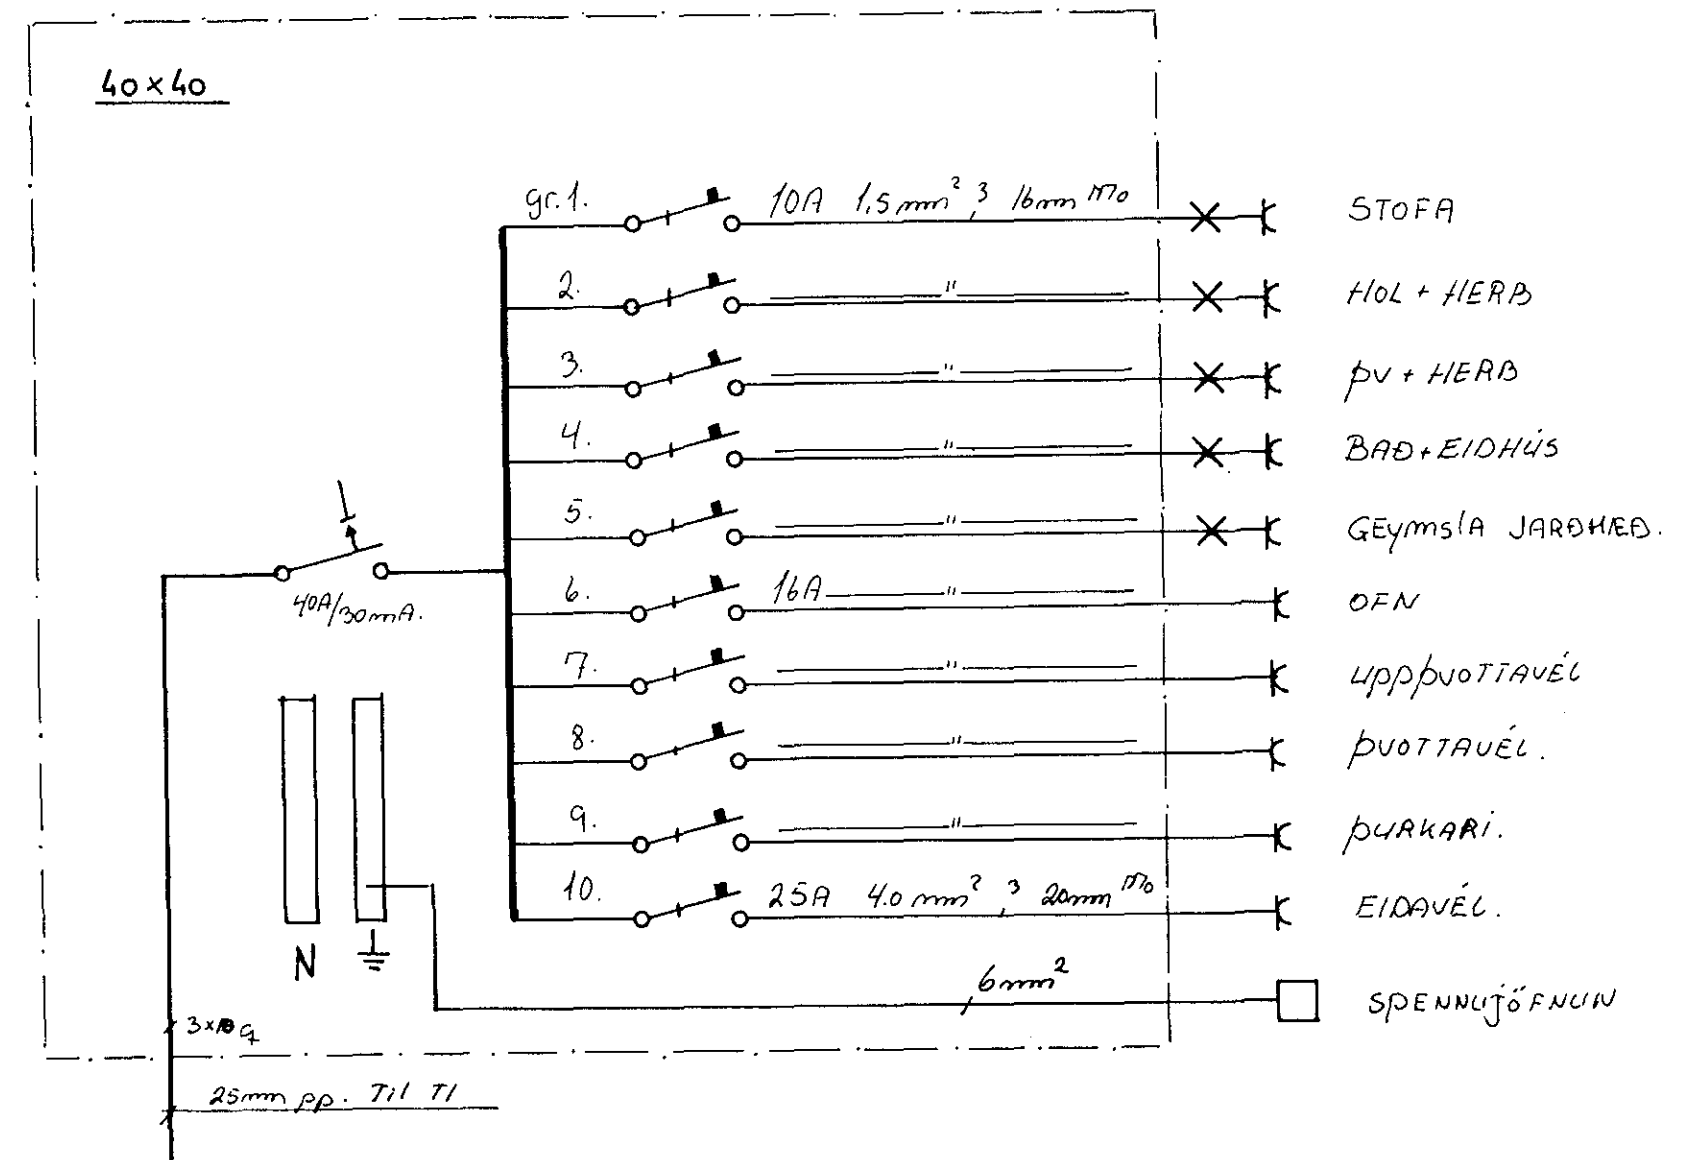 40×40
gr.1. 10A 1,5mm² ,3 16mm mo STOFA
2. " HOL + HERB
3. " ÞV + HERB
4. " BAÐ + EIDHÚS
5. " GEYMSLA JARÐHÆÐ.
40A/30mA.
6. 16A " OFN
7. " UPPÞVOTTAVÉL
8. " ÞVOTTAVÉL.
9. " ÞURKARI.
10. 25A 4.0 mm² ,3 20mm mo EIDAVÉL.
N
6mm² SPENNUJÖFNUN
3×10 q
25mm pp. Til T1